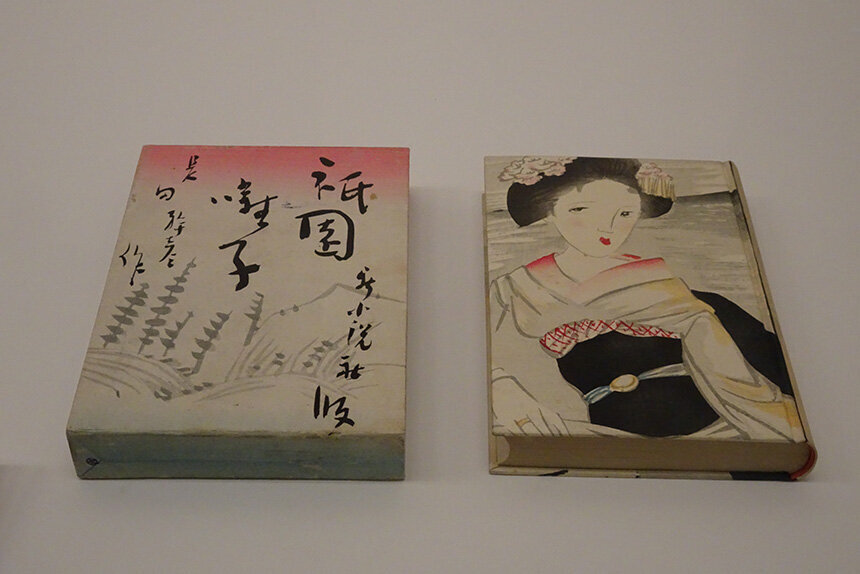 祇園
囃子
長田幹彦
作
新小説社版